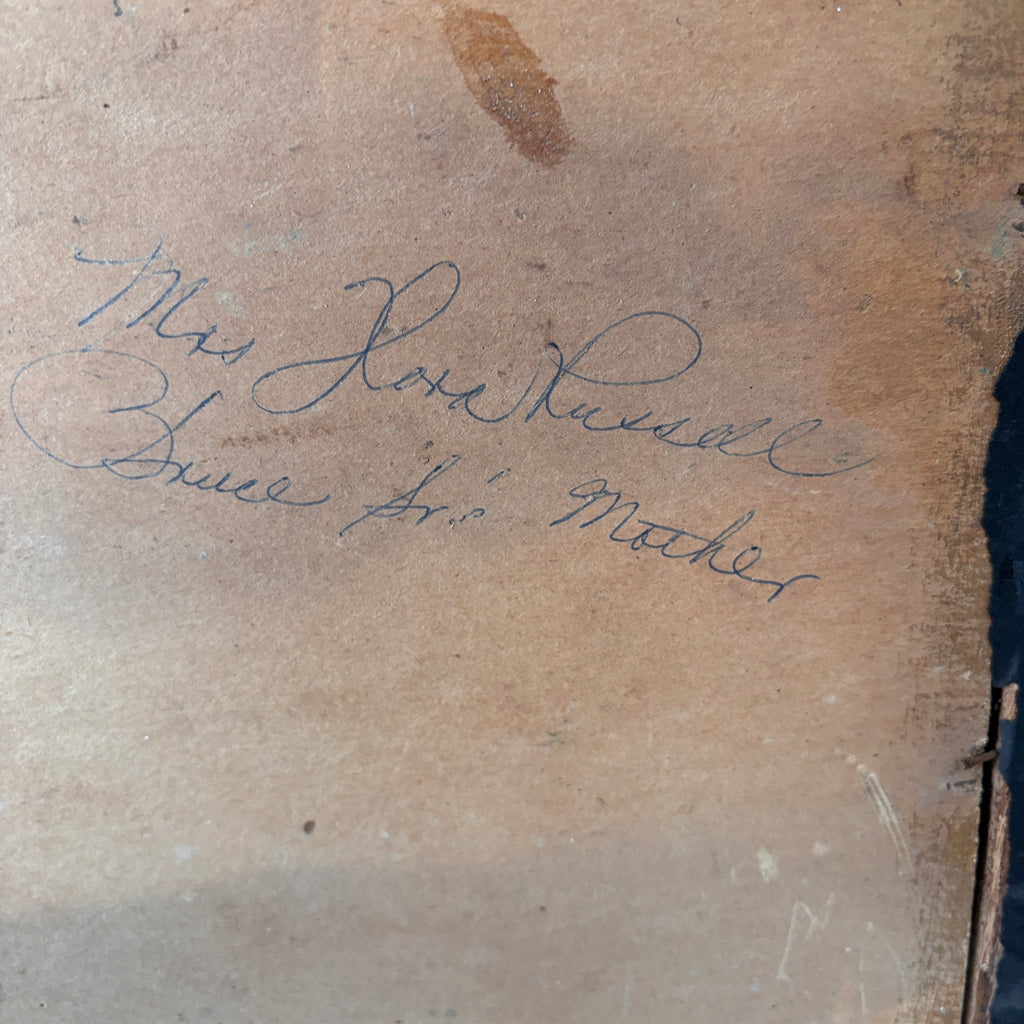 Mrs Flora Russell
Bruce Sr.'s Mother